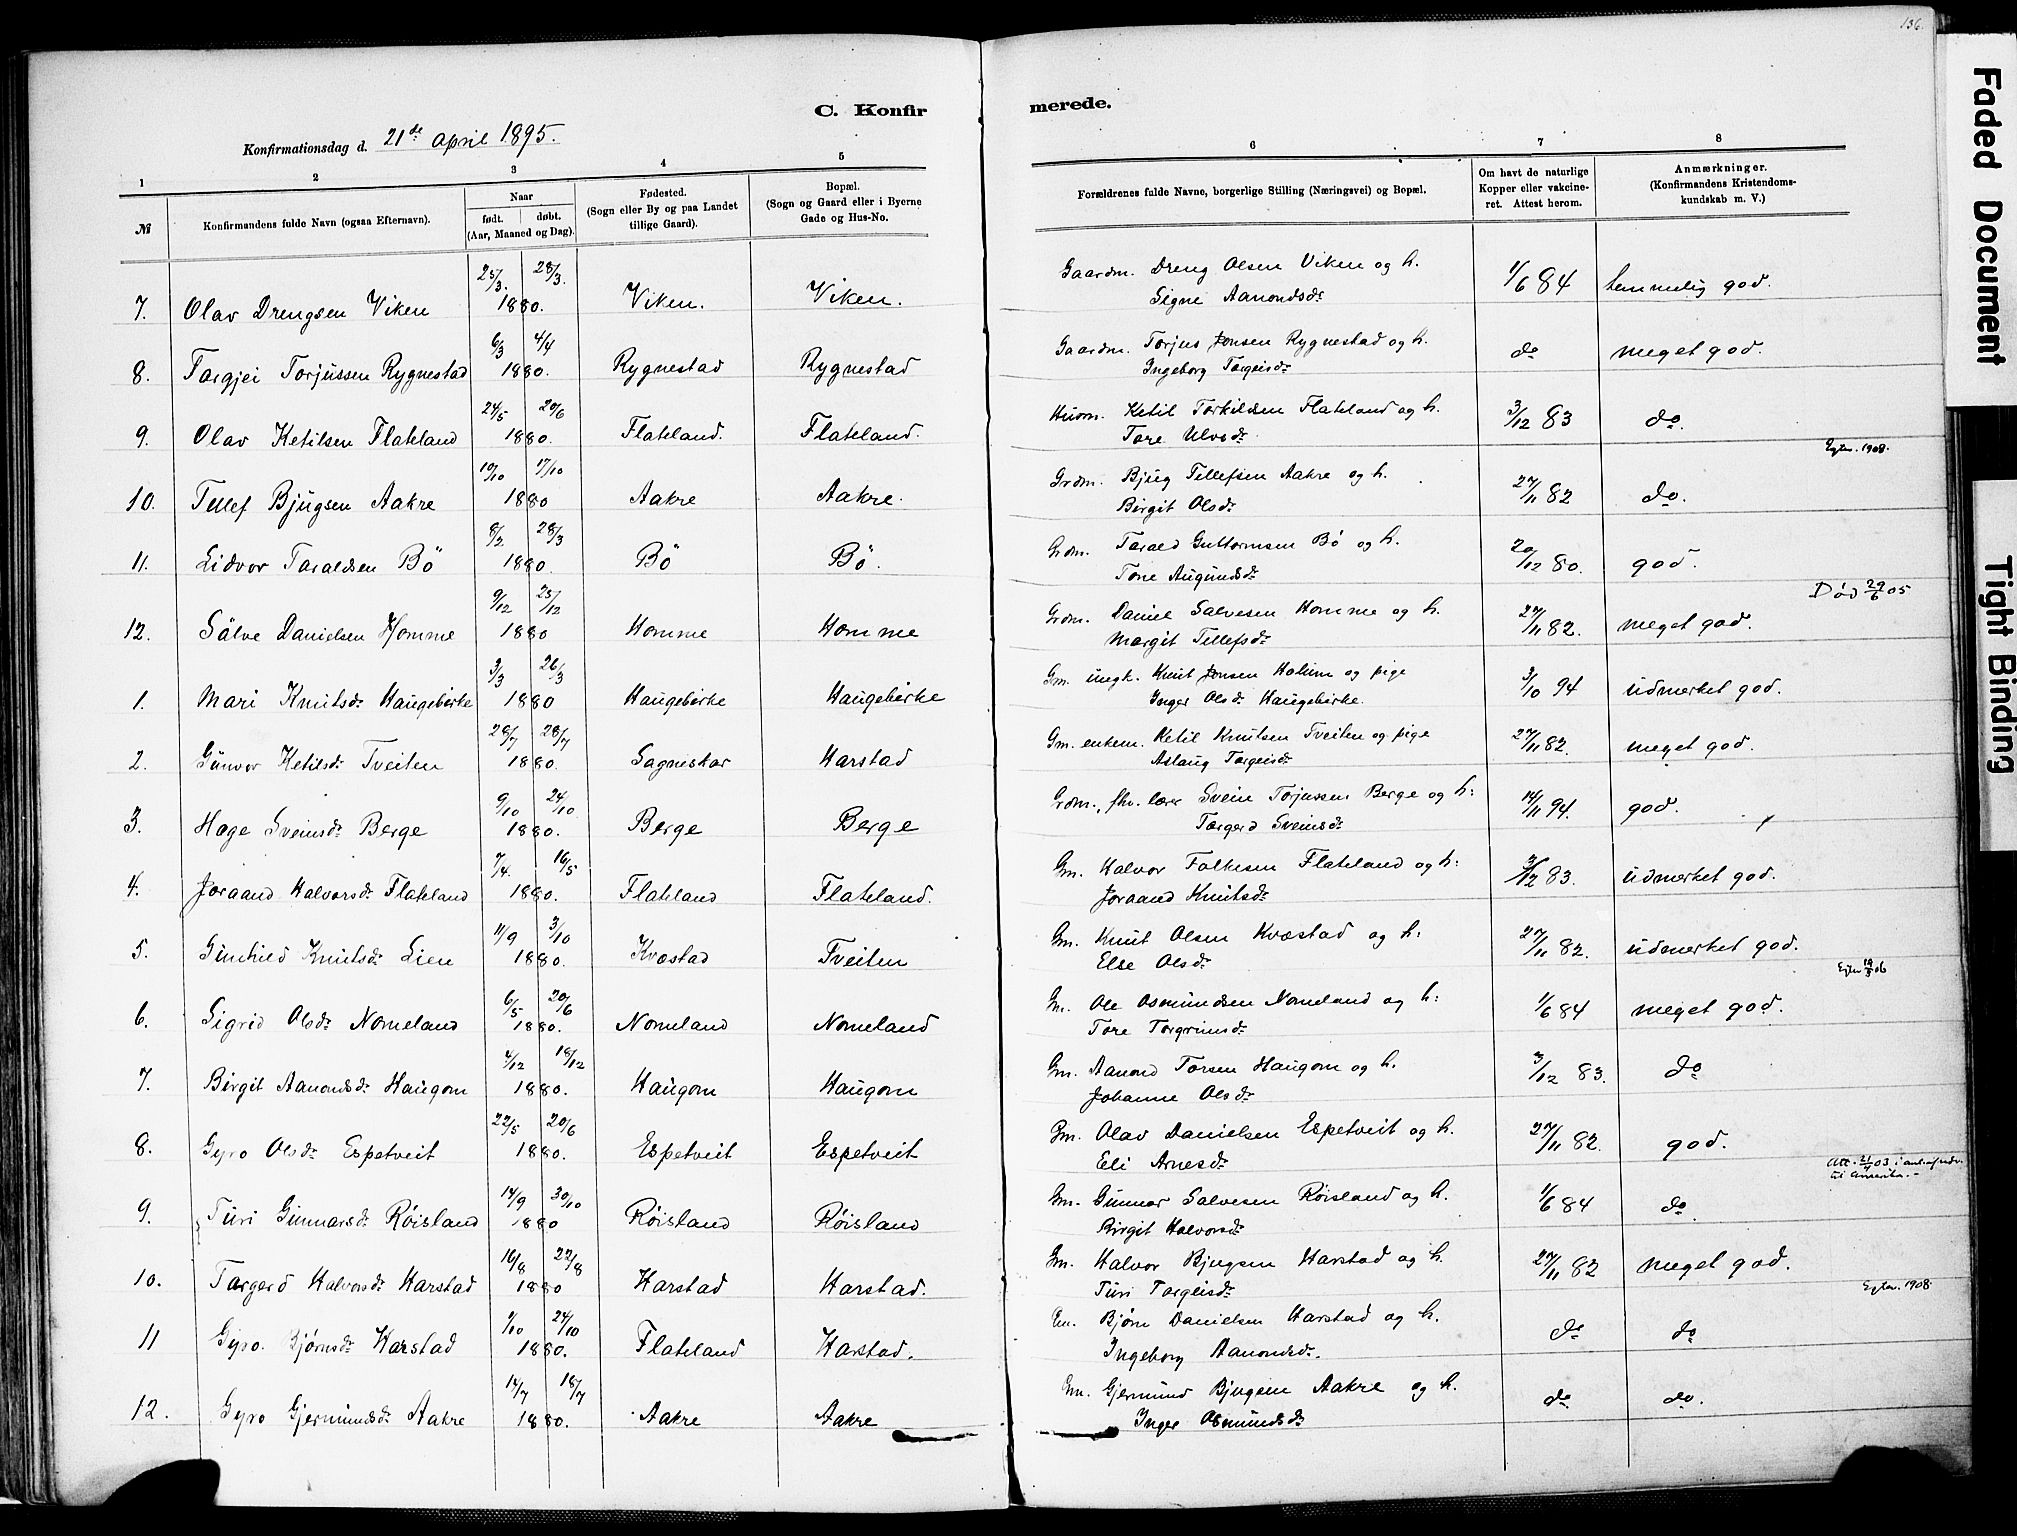 136.
C. Konfirmerede.
Konfirmationsdag d. 21de April 1895.
1 2 3 4 5 6 7 8
№
Konfirmandens fulde Navn (ogsaa Efternavn).
Naar
født. døbt.
(Aar, Maaned og Dag).
Fødested.
(Sogn eller By og paa Landet
tillige Gaard).
Bopæl.
(Sogn og Gaard eller i Byerne
Gade og Hus-No.
Forældrenes fulde Navne, borgerlige Stilling (Næringsvei) og Bopæl.
Om havt de naturlige
Kopper eller vakcine-
ret. Attest herom.
Anmærkninger.
(Konfirmandens Kristendoms-
kundskab m. V.)
25/3. 28/3. Gaardm. Dreng Olsen Viken og h.
7. Olav Drengsen Viken 1880. Viken. Viken. Signe Aanondsdr 1/6 84 temmelig god.
6/3 4/4 Gaardm. Torjus Jonsen Rygnestad og h.
8. Targjei Torjussen Rygnestad 1880. Rygnestad Rygnestad Ingeborg Targeisdr do meget god.
24/5 20/6 Husm. Ketil Torkildsen Flateland og h.
9. Olav Ketilsen Flateland 1880. Flateland. Flateland. Tore Ulvsdr 3/12 83 do.
Egtev. 1908.
10/10 17/10 Grdm. Bjug Tellefsen Aakre og h.
10. Tellef Bjugsen Aakre 1880 Aakre Aakre. Birgit Olsdr 27/11 82 do.
8/2 28/3 Grdm. Tarald Guttormsen Bö og h.
11. Lidvor Taraldsen Bö 1880. Bö Bö. Tone Augundsdr 20/12 80. god.
Död 29/6 05
9/12 25/12 Grdm. Daniel Salvesen Homme og h.
12. Sälve Danielsen Homme 1880 Homme Homme Margit Tellefsdr 27/11 82. meget god.
3/3 26/3 Gm. ungk. Knut Jonsen Holum og pige
1. Mari Knutsdr Haugebirke 1880 Haugebirke Haugebirke Inger Olsdr Haugebirke. 3/10 94 udmerket god.
28/7 28/7 Gm. enkem. Ketil Knutsen Tveiten og pige
2. Gunvor Ketilsdr Tveiten 1880. Sagneskar Harstad Aslaug Targeisdr 27/11 82. meget god.
9/10 24/10 Grdm., fhv. lærer Svein Torjussen Berge og h:
3. Hæge Sveinsdr Berge 1880. Berge Berge Targerd Sveinsdr 14/11 94. god.
7/4 16/5 Gm. Halvor Folkesen Flateland og h:
4. Joraand Halvorsdr Flateland 1880. Flateland Flateland. Joraand Knutsdr 3/12 83. udmerket god.
11/9 3/10 Gm. Knut Olsen Kvæstad og h:
5. Gunhild Knutsdr Lien 1880. Kvæstad Tveiten Else Olsdr 27/11 82. udmerket god.
6/5 20/6 Gm. Ole Osmundsen Nomeland og h:
6. Sigrid Olsdr Nomeland 1880. Nomeland Nomeland Tore Torgrimsdr 1/6 84 meget god.
4/12 18/12 Gm. Aanond Torsen Haugom og h.
7. Birgit Aanondsdr Haugom 1880. Haugom Haugom Johanne Olsdr 3/12 83. do
22/5 20/6 Gm. Olav Danielsen Espetveit og h.
8. Gyro Olsdr Espetveit 1880. Espetveit Espetveit Eli Arnesdr 27/11 82. god.
til Amerika.
14/9 30/10 Gm. Gunnar Salvesen Röisland og h.
9. Turi Gunnarsdr Röisland 1880 Röisland Röisland Birgit Halvorsdr 1/6 84 do.
16/8 22/8 Gm. Halvor Bjugsen Harstad og h.
10. Targerd Halvorsdr Harstad 1880 Harstad Harstad. Turi Targeisdr 27/11 82 meget god.
Egtev. 1908.
1/10 24/10 Gm. Bjørn Danielsen Harstad og h.
11 Gyro Bjørnsdr Harstad 1880. Flateland Harstad. Ingeborg Aanondsdr. do do
14/7 18/7 Gm. Gjermund Bjugsen Aakre og h.
12. Gyro Gjermundsdr Aakre 1880. Aakre Aakre Inger Osmundsdr do do.
Faded Document
Tight Binding